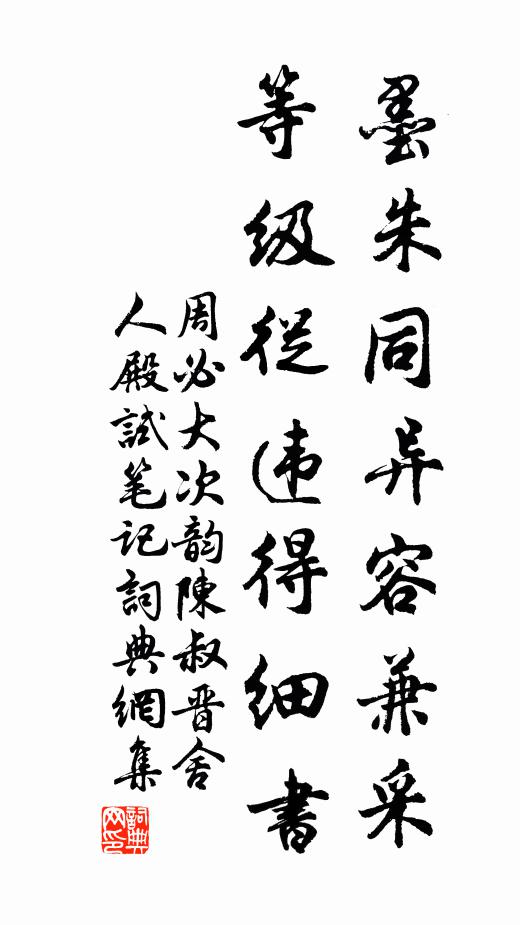 墨朱同异容兼采
等级從违得细書
周必大次韵陳叔晋舍
人殿試笔记詞典網集
詞典网印